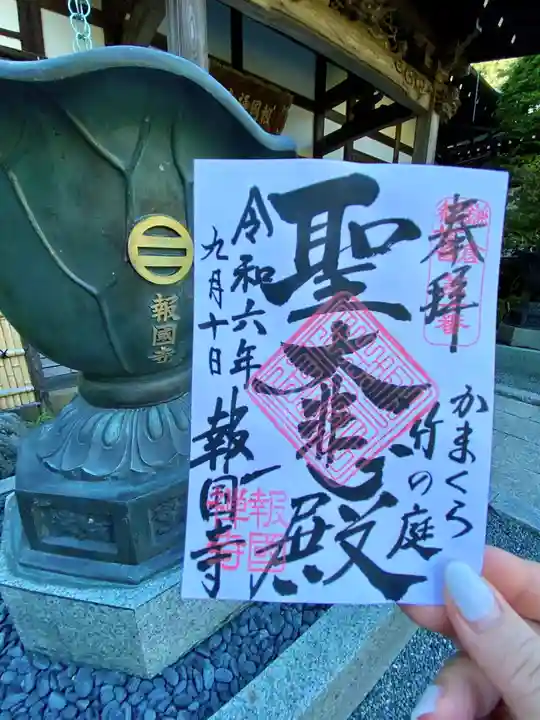 奉拝
かまくら
竹の庭
聖大悲殿
令和六年
九月十日
報国寺
報國
禅寺
報國寺